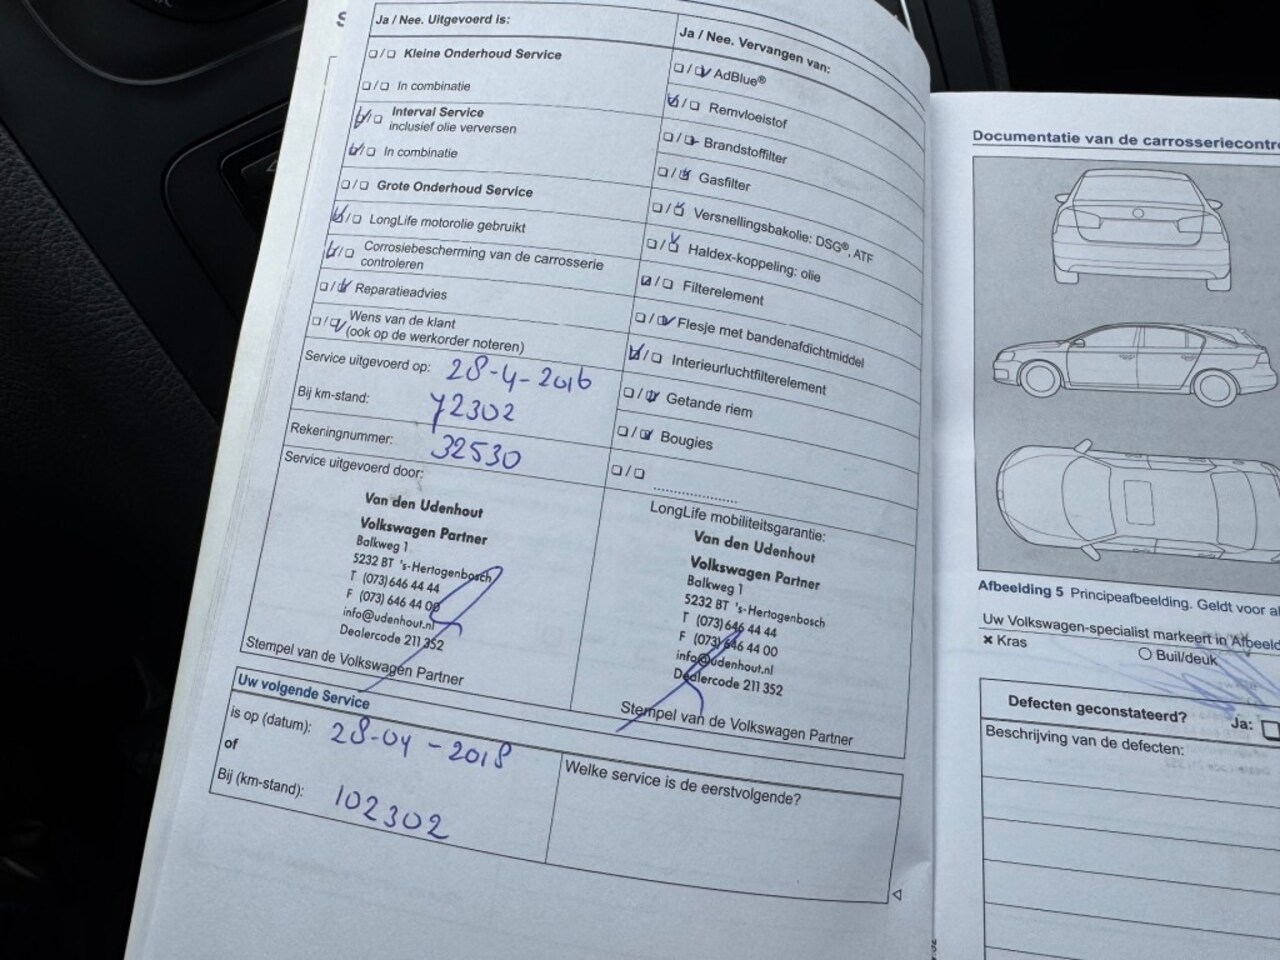 Ja / Nee. Uitgevoerd is:
Kleine Onderhoud Service
In combinatie
Interval Service
inclusief olie verversen
In combinatie
Grote Onderhoud Service
LongLife motorolie gebruikt
Corrosiebescherming van de carrosserie
controleren
Reparatieadvies
Wens van de klant
(ook op de werkorder noteren)
Service uitgevoerd op: 28-4-2016
Bij km-stand: 72302
Rekeningnummer: 32530
Service uitgevoerd door:
Van den Udenhout
Volkswagen Partner
Balkweg 1
5232 BT 's-Hertogenbosch
T (073) 646 44 44
F (073) 646 44 00
info@udenhout.nl
Dealercode 211 352
Stempel van de Volkswagen Partner
Ja / Nee. Vervangen van:
AdBlue®
Remvloeistof
Brandstoffilter
Gasfilter
Versnellingsbakolie: DSG®, ATF
Haldex-koppeling: olie
Filterelement
Flesje met bandenafdichtmiddel
Interieurluchtfilterelement
Getande riem
Bougies
....................
LongLife mobiliteitsgarantie:
Van den Udenhout
Volkswagen Partner
Balkweg 1
5232 BT 's-Hertogenbosch
T (073) 646 44 44
F (073) 646 44 00
info@udenhout.nl
Dealercode 211 352
Stempel van de Volkswagen Partner
Uw volgende Service
is op (datum): 28-04-2018
of
Bij (km-stand): 102302
Welke service is de eerstvolgende?
Documentatie van de carrosseriecontr
Afbeelding 5 Principeafbeelding. Geldt voor al
Uw Volkswagen-specialist markeert in Afbeeld
× Kras
Buil/deuk
Defecten geconstateerd?
Ja:
Beschrijving van de defecten: